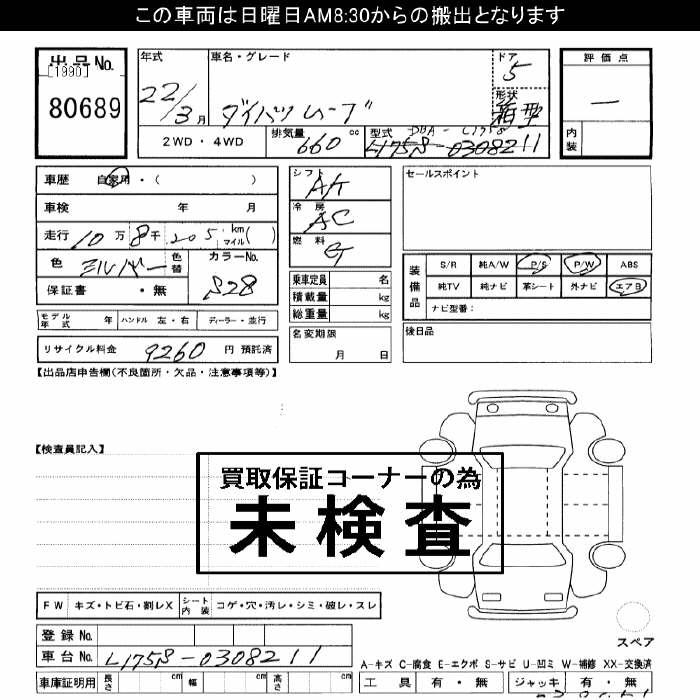 この車両は日曜日AM8:30からの搬出となります
出品No.
[1990]
80689
年式
22/3月
車名・グレード
ダイハツムーブ
ドア
5
形状
箱型
評価点
—
内装
2WD・4WD
排気量
660 cc
型式
DBA-L175S
L175S-0308211
車歴 自家用・( )
車検 年 月
走行 10万8千205 km マイル( )
色 シルバー 色替
カラーNo.
S28
保証書 ・無
シフト
AT
冷房
AC
燃料
G
乗車定員 名
積載量 kg
総重量 kg
セールスポイント
装備品
S/R 純A/W P/S P/W ABS
純TV 純ナビ 革シート 外ナビ エアB
ナビ型番：
モデル年式 年 ハンドル 左・右 ディーラー・並行
名変期限
月 日
後日品
リサイクル料金 9260 円 預託済
【出品店申告欄(不良箇所・欠品・注意事項等)】
【検査員記入】
買取保証コーナーの為
未検査
FW キズ・トビ石・割レX シート内装 コゲ・穴・汚レ・シミ・破レ・スレ
スペア
登録No.
車台No. L175S-0308211
A-キズ C-腐食 E-エクボ S-サビ U-凹ミ W-補修 XX-交換済
車庫証明用 長さ cm 幅 cm 高さ cm
工具 有・無 ジャッキ 有・無